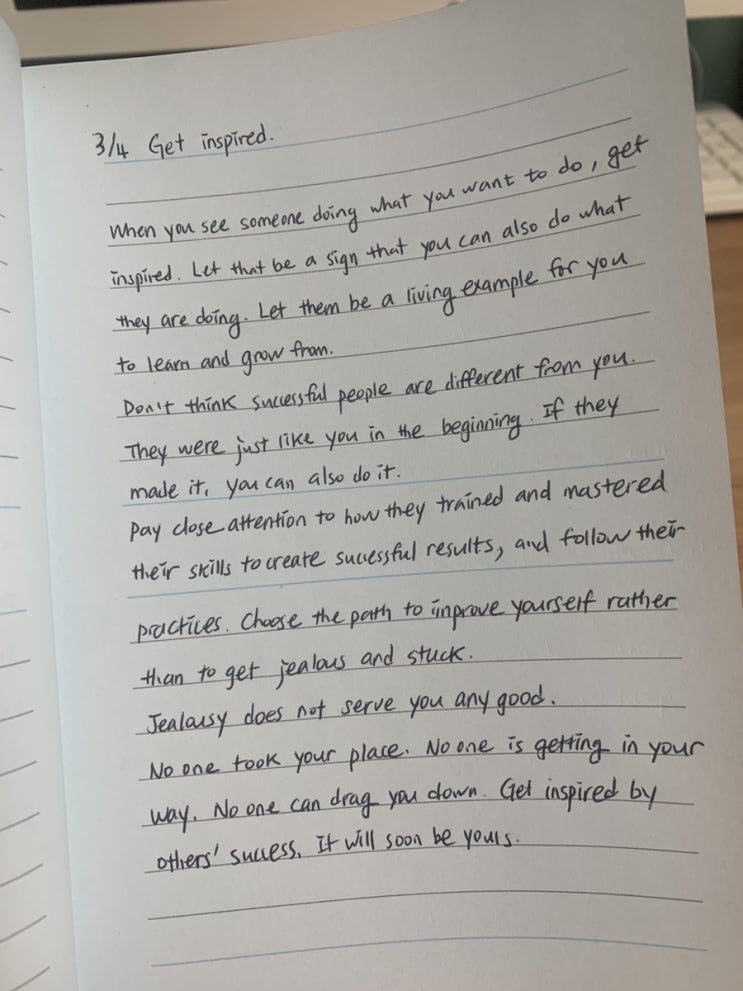 3/4 Get inspired.
When you see someone doing what you want to do, get
inspired. Let that be a sign that you can also do what
they are doing. Let them be a living example for you
to learn and grow from.
Don't think successful people are different from you.
They were just like you in the beginning. If they
made it, you can also do it.
Pay close attention to how they trained and mastered
their skills to create successful results, and follow their
practices. Choose the path to improve yourself rather
than to get jealous and stuck.
Jealousy does not serve you any good.
No one took your place. No one is getting in your
way. No one can drag you down. Get inspired by
others' success. It will soon be yours.